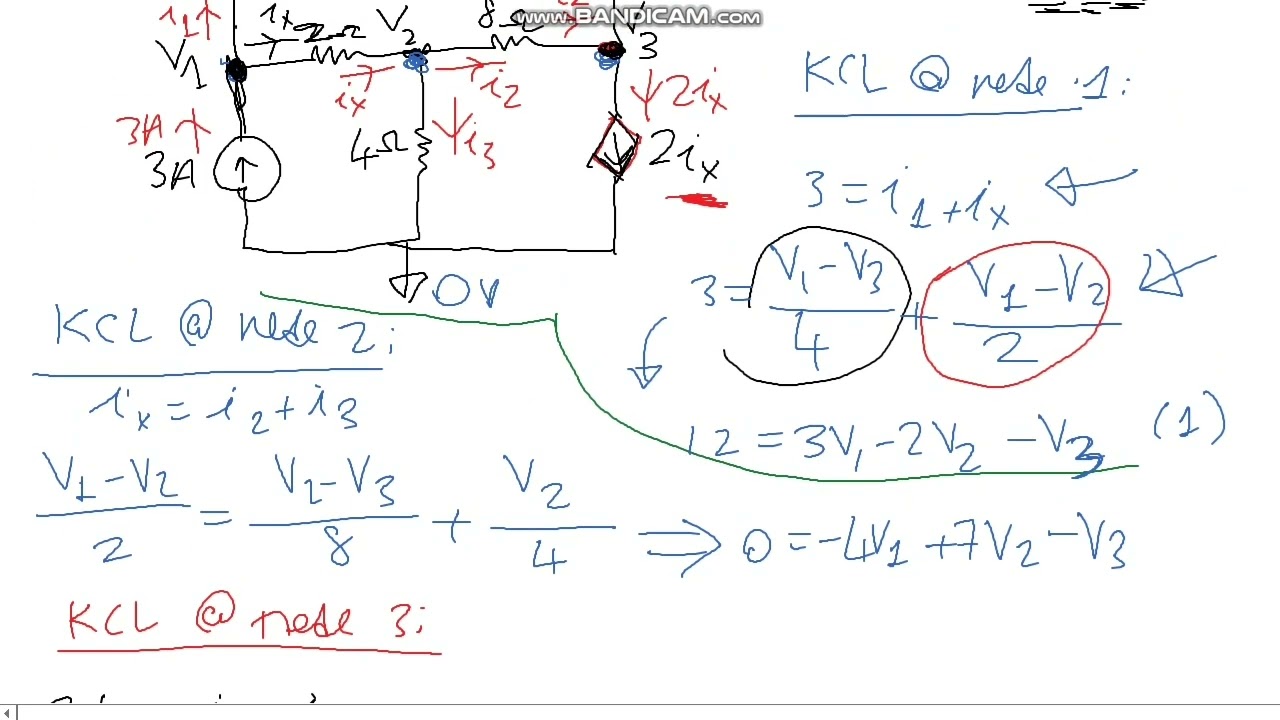 www.BANDICAM.com
i1
ix
2Ω
V2
8Ω
V1
3
ix
i2
2ix
3A
3A
4Ω
i3
2ix
0V
KCL @ node 1:
3 = i1 + ix
3 = V1 - V3 / 4 + V1 - V2 / 2
12 = 3V1 - 2V2 - V3 (1)
KCL @ node 2:
ix = i2 + i3
V1 - V2 / 2 = V2 - V3 / 8 + V2 / 4 ⇒ 0 = -4V1 + 7V2 - V3
KCL @ node 3: